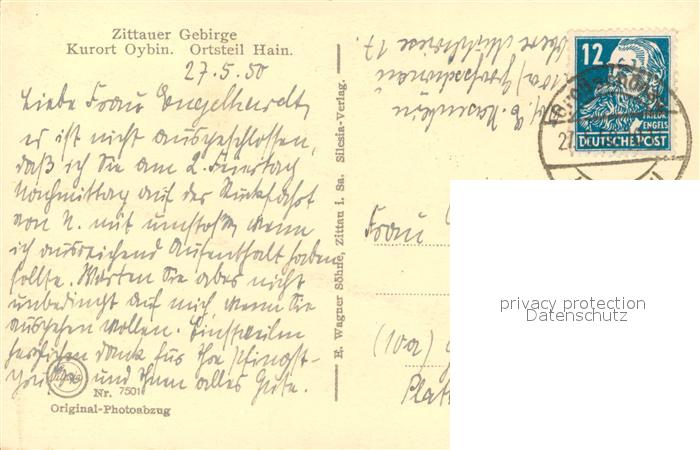 Zittauer Gebirge
Kurort Oybin. Ortsteil Hain.
27.5.50
Liebe Frau Engelhardt,
es ist nicht ausgeschlossen,
daß ich Sie am 2. Feiertag
Nachmittag auf der Rückfahrt
von N. mit wenn
ich ausreichend Aufenthalt haben
sollte. Warten Sie aber nicht
unbedingt auf mich, wenn Sie
ausgehen wollen. Einstweilen
herzlichen Dank für Ihre Pfingst-
und Ihnen alles Gute.
Nr. 7501
Original-Photoabzug
E. Wagner Söhne, Zittau i. Sa. Silesia-Verlag.
(10a) Großschönau
12
FRIEDR.
ENGELS
DEUTSCHE POST
27
Frau
(10a)
Platt
privacy protection
Datenschutz